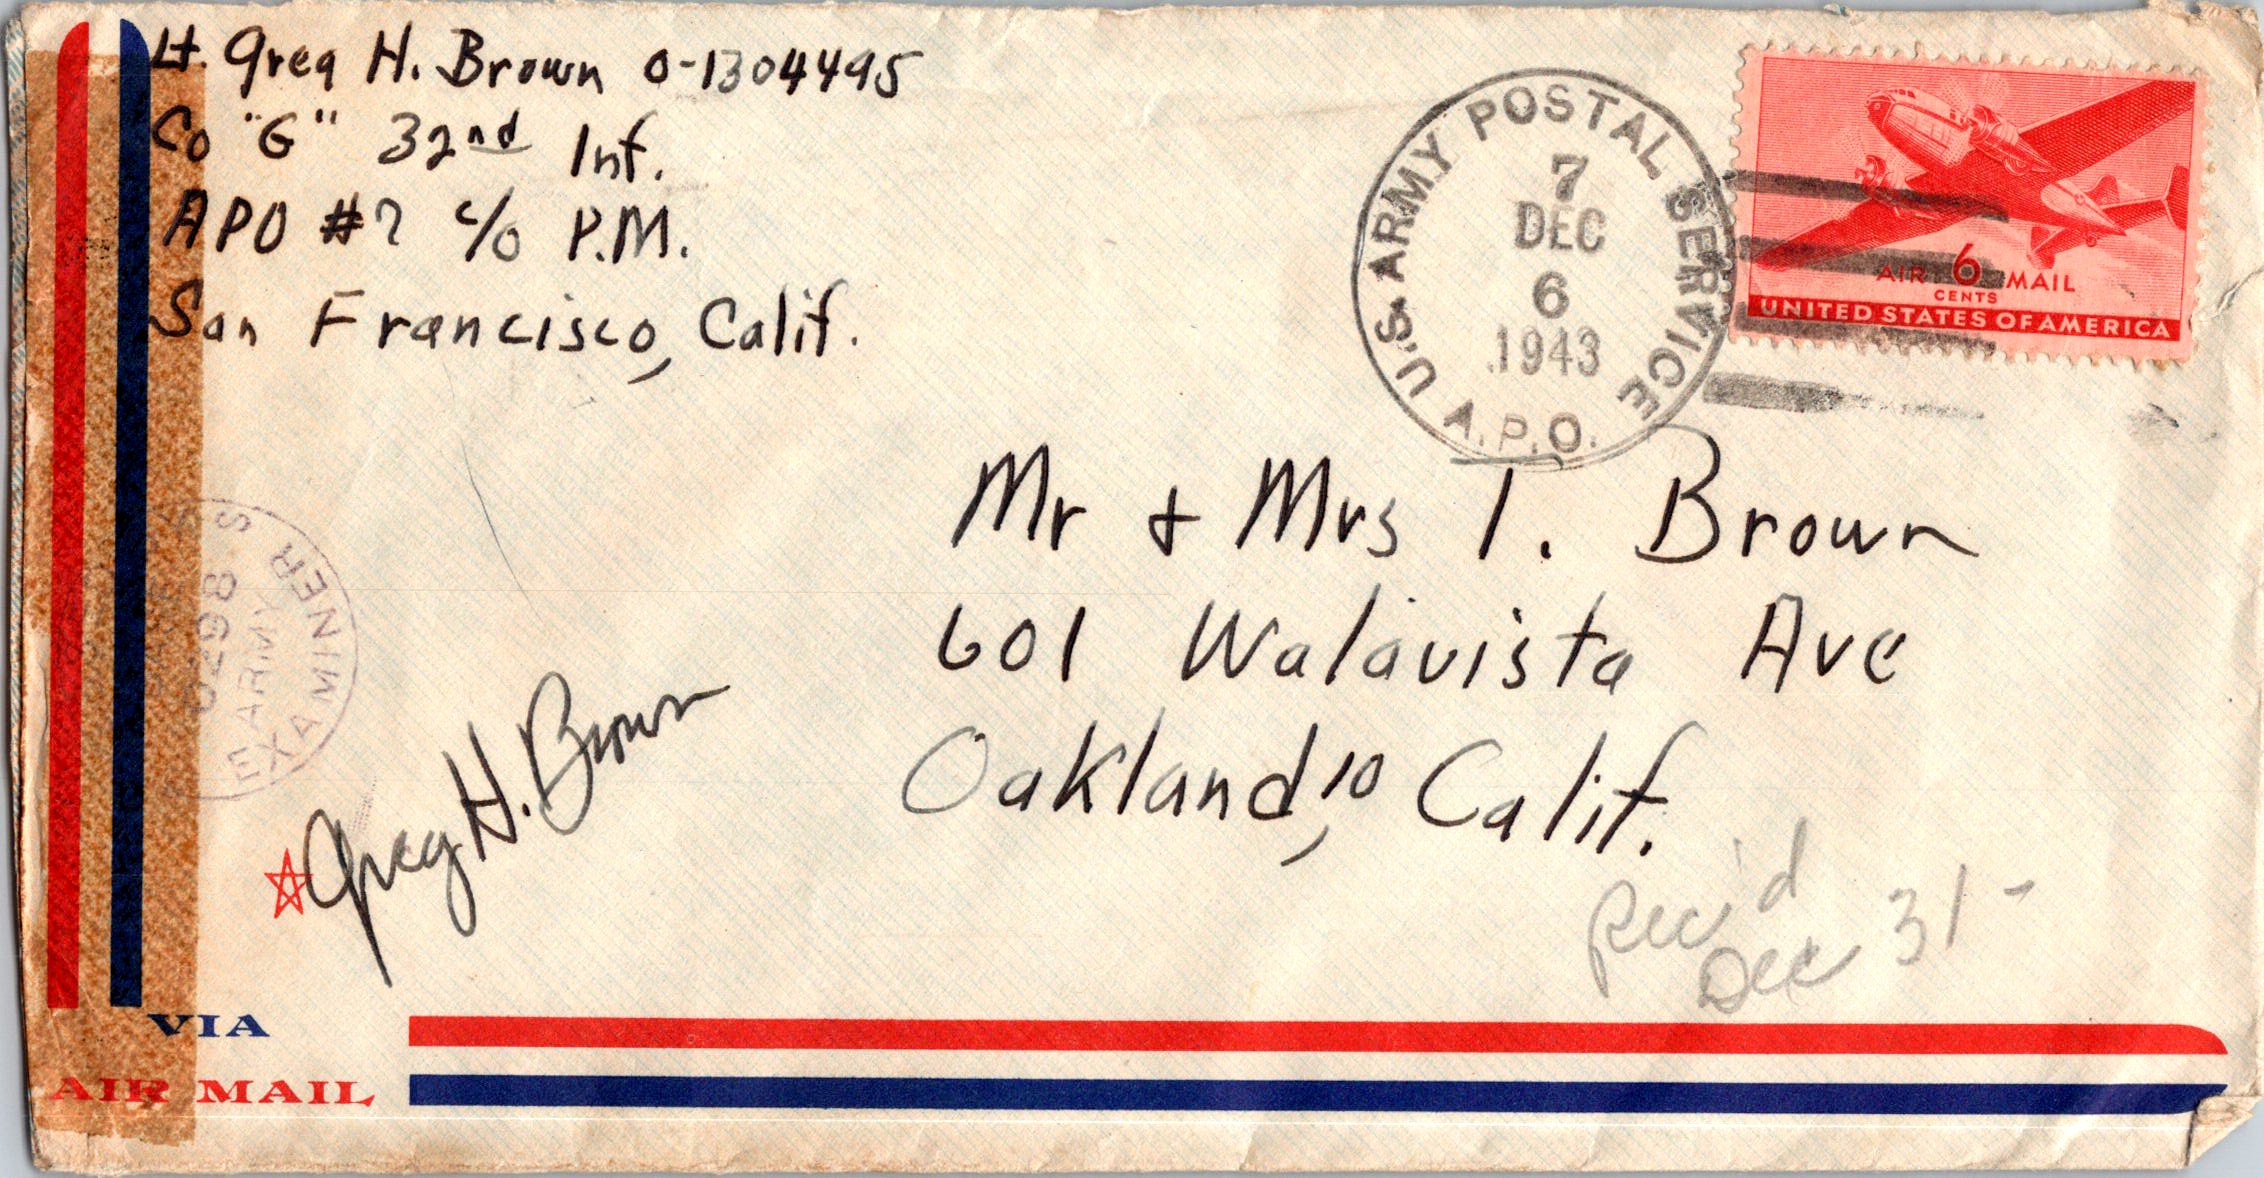 Lt. Greg H. Brown O-1304495
Co "G" 32nd Inf.
APO #7 c/o P.M.
San Francisco, Calif.
U.S. ARMY POSTAL SERVICE
A.P.O.
7
DEC
6
1943
AIR 6 MAIL
CENTS
UNITED STATES OF AMERICA
Mr & Mrs I. Brown
601 Walavista Ave
Oakland, 10 Calif.
ARMY
EXAMINER
Greg H. Brown
Rec'd
Dec 31-
VIA
AIR MAIL